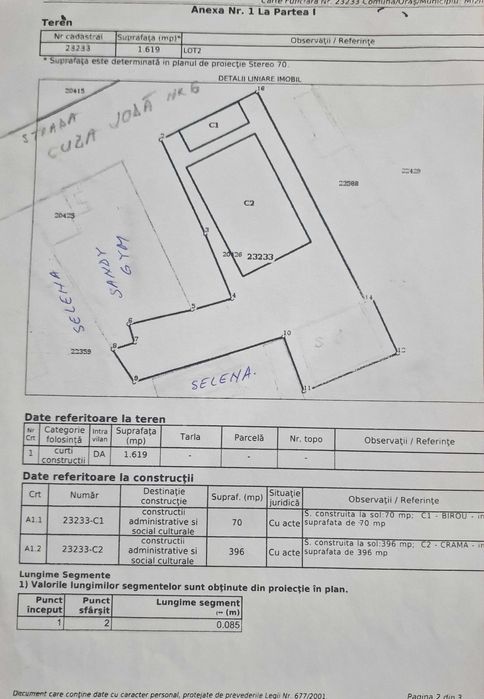 Carte Funciară Nr. 23233 Comuna/Oraş/Municipiu:
Anexa Nr. 1 La Partea I
Teren
Nr cadastral Suprafaţa (mp)* Observaţii / Referinţe
23233 1.619 LOT2
* Suprafaţa este determinată in planul de proiecţie Stereo 70.
DETALII LINIARE IMOBIL
20415
16
STRADA
CUZA VODĂ NR 6
2
C1
22429
22508
C2
20425
3
20426 23233
SANDY
GYM
SELENA
4
14
5
6
7
10
8
22359
S
12
9
SELENA.
11
Date referitoare la teren
Nr Crt Categorie folosinţă Intra vilan Suprafaţa (mp) Tarla Parcelă Nr. topo Observaţii / Referinţe
1 curti constructii DA 1.619 - - -
Date referitoare la construcţii
Crt Număr Destinaţie construcţie Supraf. (mp) Situaţie juridică Observaţii / Referinţe
A1.1 23233-C1 constructii administrative si social culturale 70 Cu acte S. construita la sol:70 mp; C1 - BIROU - in suprafata de 70 mp
A1.2 23233-C2 constructii administrative si social culturale 396 Cu acte S. construita la sol:396 mp; C2 - CRAMA - in suprafata de 396 mp
Lungime Segmente
1) Valorile lungimilor segmentelor sunt obţinute din proiecţie în plan.
Punct început Punct sfârşit Lungime segment (m)
1 2 0.085
Document care conţine date cu caracter personal, protejate de prevederile Legii Nr. 677/2001.
Pagina 2 din 3